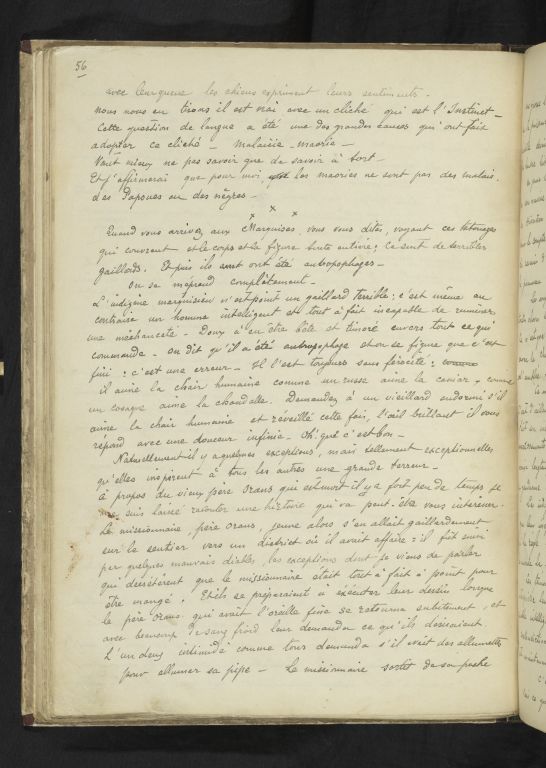 56
avec leur queue les chiens expriment leurs sentiments.
nous nous en tirons il est vrai avec un cliché qui est l'Instinct_
Cette question de langue a été une des grandes causes qui ont fait
adopter ce cliché _ malaisie _ maorie _
Vaut mieux ne pas savoir que de savoir à tort_
Et j'affirmerai que pour moi les maories ne sont pas des malais
des Papoues ou des nègres_
x x x
Quand vous arrivez aux Marquises, vous vous dites, voyant ces tatouages
qui couvrent et le corps et la figure toute entière; ce sont de terribles
gaillards. Et puis ils ont été antropophages_
On se méprend complètement_
L'indigène marquisien n'est point un gaillard terrible; c'est même au
contraire un homme intelligent et tout à fait incapable de ruminer
une méchanceté_ Doux à en être bête et timoré envers tout ce qui
commande_ On dit qu'il a été antropophage et on se figure que c'est
fini: c'est une erreur_ Il l'est toujours sans férocité;
il aime la chair humaine comme un russe aime le caviar, comme
un cosaque aime la chandelle. Demandez à un vieillard endormi s'il
aime la chair humaine et réveillé cette fois, l'œil brillant il vous
répond avec une douceur infinie_ Oh! que c'est bon_
Naturellement il y a quelques exceptions, mais tellement exceptionnelles
qu'elles inspirent à tous les autres une grande terreur_
à propos du vieux père Orans qui est mort il y a fort peu de temps je
me suis laissé raconter une histoire qui va peut-être vous intéresser.
Le missionnaire, père Orans, jeune alors s'en allait gaillardement
sur le sentier vers un district où il avait affaire: il fut suivi
par quelques mauvais diables, les exceptions dont je viens de parler
qui décrétèrent que le missionnaire était tout à fait à point pour
être mangé. Et ils se préparaient à exécuter leur dessin lorsque
le père Orans, qui avait l'oreille fine se retourna subitement, et
avec beaucoup de sang froid leur demanda ce qu'ils désiraient
L'un deux intimidé comme leur demanda s'il avait des allumettes
pour allumer sa pipe_ Le missionnaire sortit de sa poche